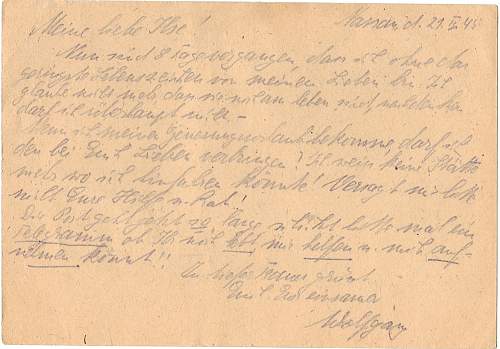 Meine liebe Ilse! Nassau, d. 21. II. 45
Nun sind 8 Tage vergangen, dass ich ohne das
geringste Lebenszeichen von meinen Lieben bin. Ich
glaube nicht mehr, dass sie noch am Leben sind,
darf ich überhaupt nicht –
Wenn ich meinen Genesungsurlaub bekomme, darf ich
den bei Euch Lieben verbringen? Ich weiss keine Stätte
mehr wo ich hinfahren könnte! Versagt mir bitte
nicht Eure Hilfe u. Rat!
Die Post geht jetzt so lange, schickt bitte mal ein
Telegramm ob Ihr noch lebt mir helfen u. mich auf-
nehmen könnt!!
In tiefer Trauer grüsst
Euch Euer einsamer
Wolfgang